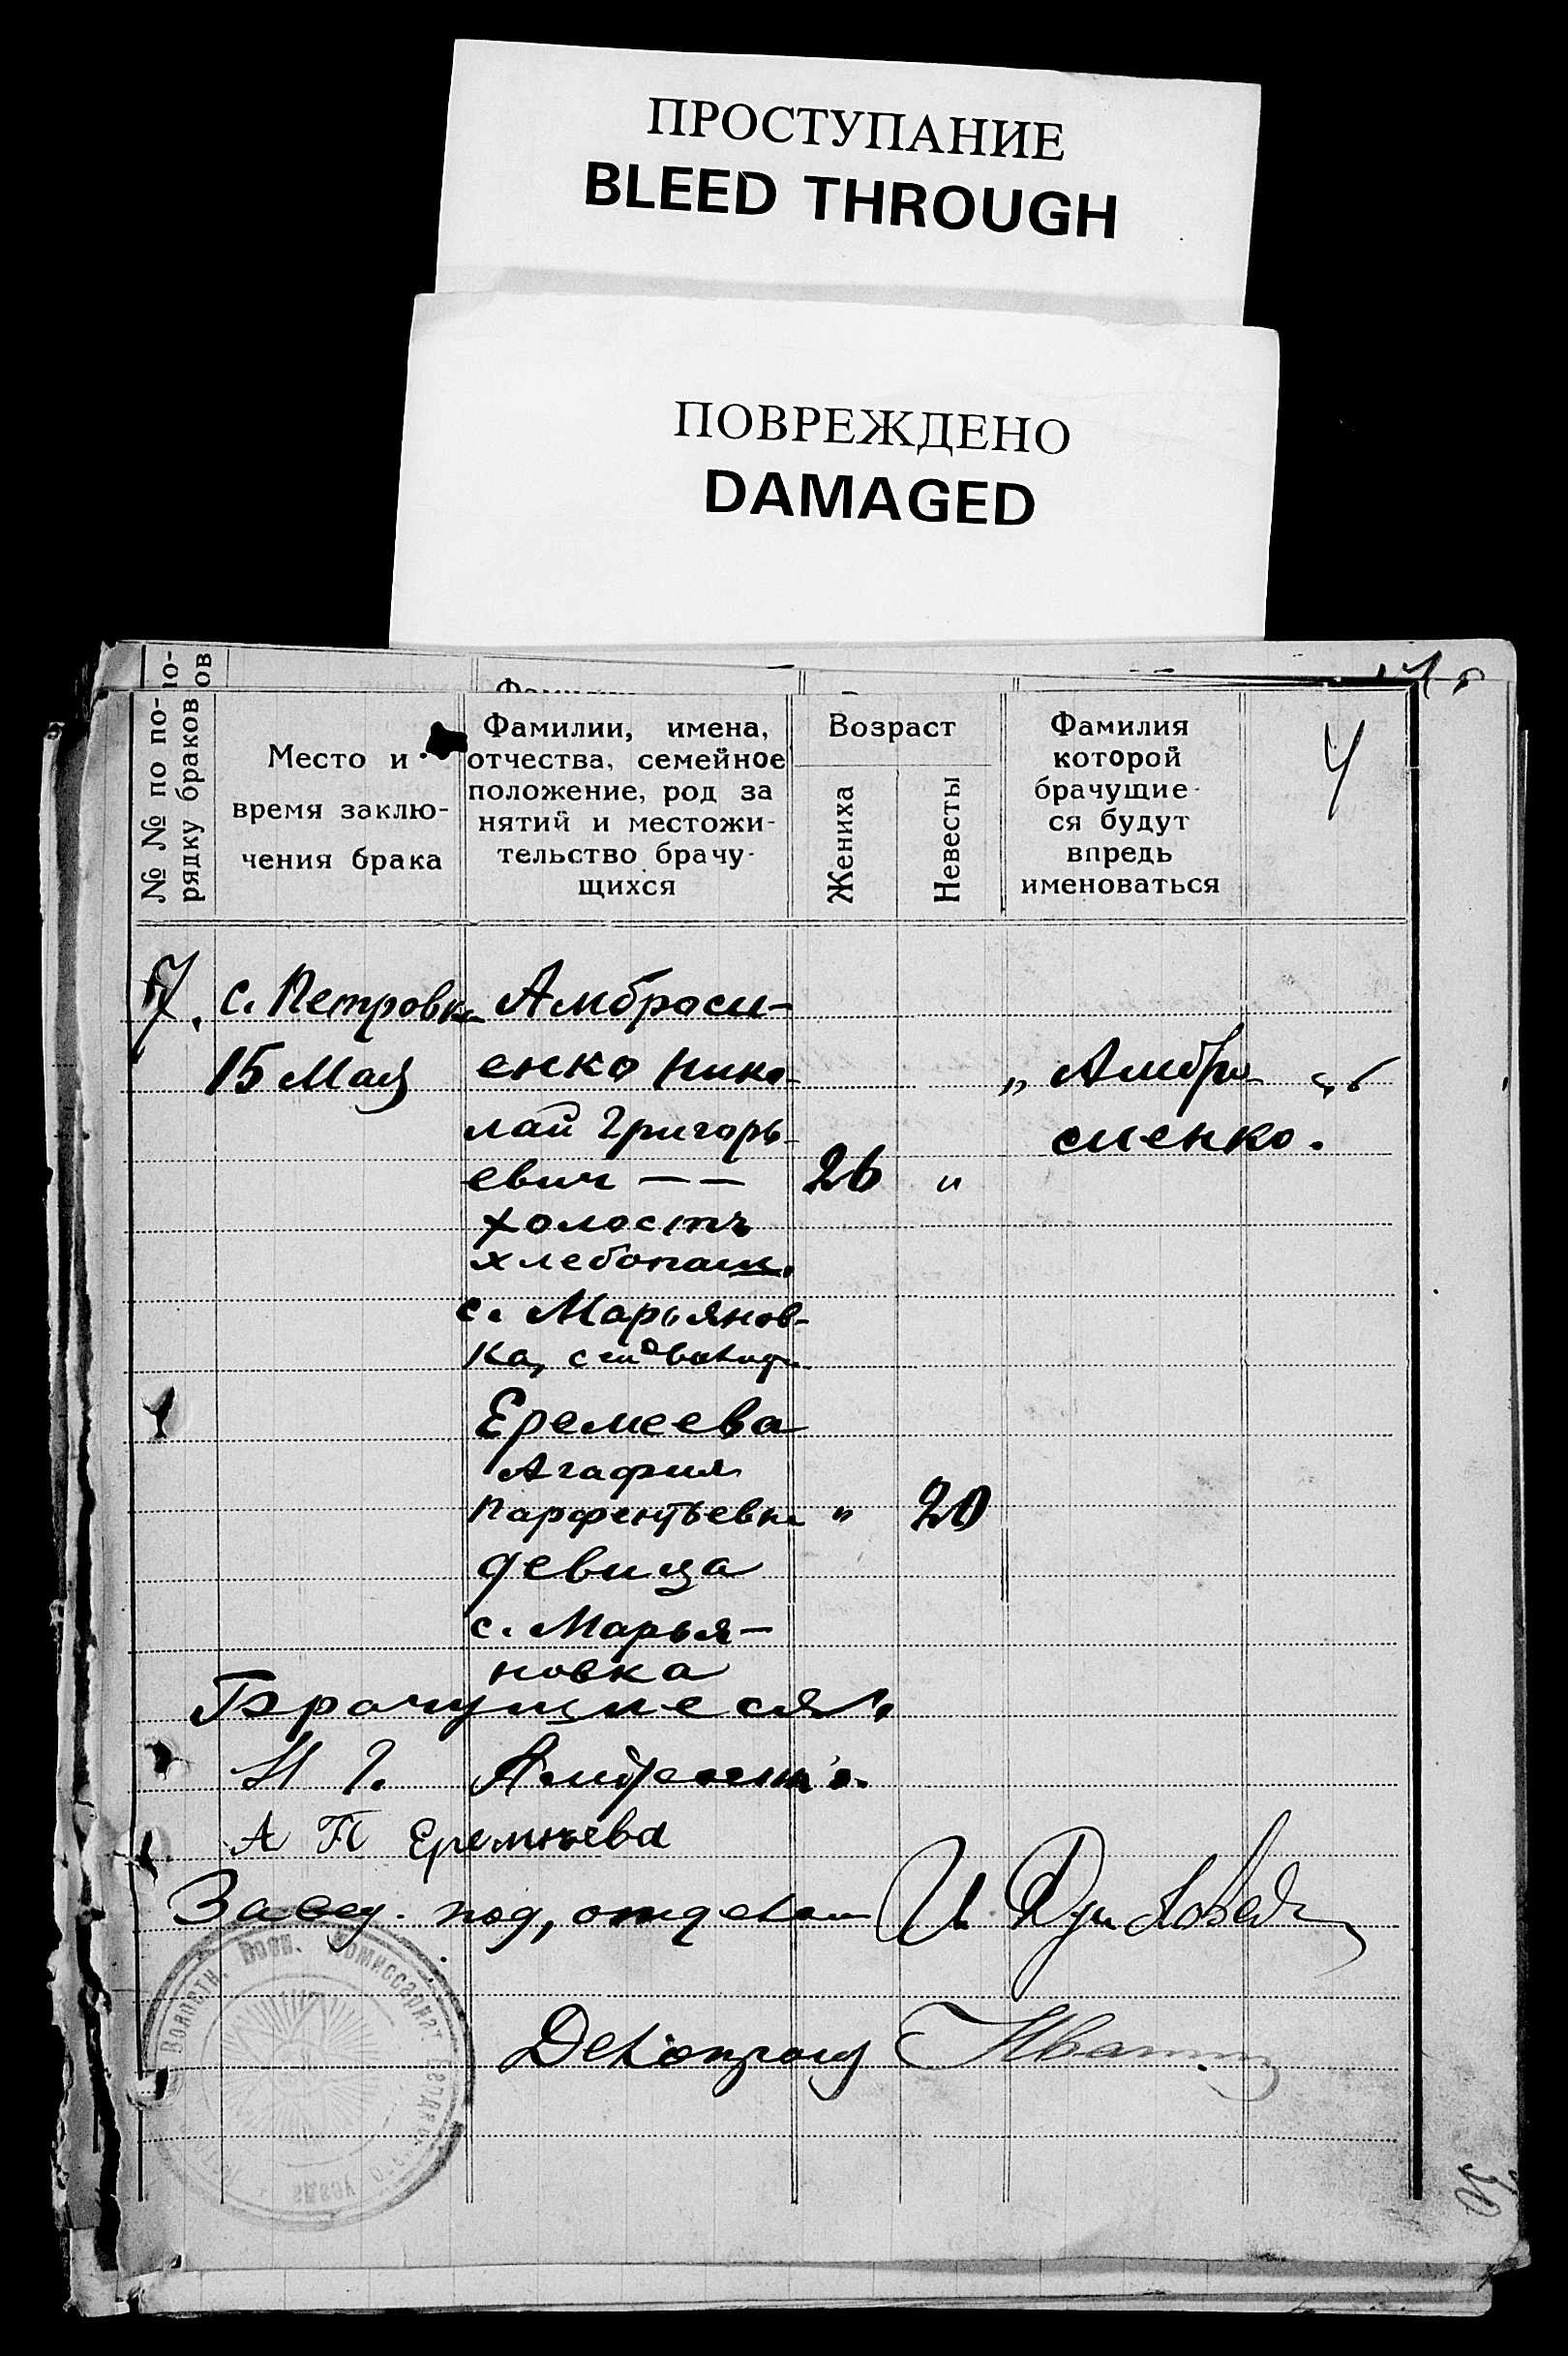 ПРОСТУПАНИЕ
BLEED THROUGH
ПОВРЕЖДЕНО
DAMAGED
№ № по по-
рядку браков
Место и
время заклю-
чения брака
Фамилии, имена,
отчества, семейное
положение, род за
нятий и местожи-
тельство брачу-
щихся
Возраст
Жениха
Невесты
Фамилия
которой
брачущие-
ся будут
впредь
именоваться
4
7. с. Петровка Амброси-
15 Мая енко Нико- „ Амбро- "
лай Григорь- сиенко.
евич — — 26 "
холостъ
хлебопаш.
с. Марьянов-
ка,
Еремеева
Агафия
Парфентьевна " 20
девица
с. Марья-
новка
Брачущиеся:
Н Г.
А П Еремњева
Завед. под, отделом И.
Волостн. Воен. Комиссариат
уезда
Делопроизв